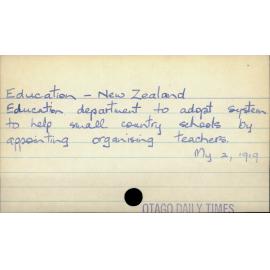 Education - New Zealand
Education department to adopt system
to help small country schools by
appointing organising teachers.
My 2, 1919
OTAGO DAILY TIMES